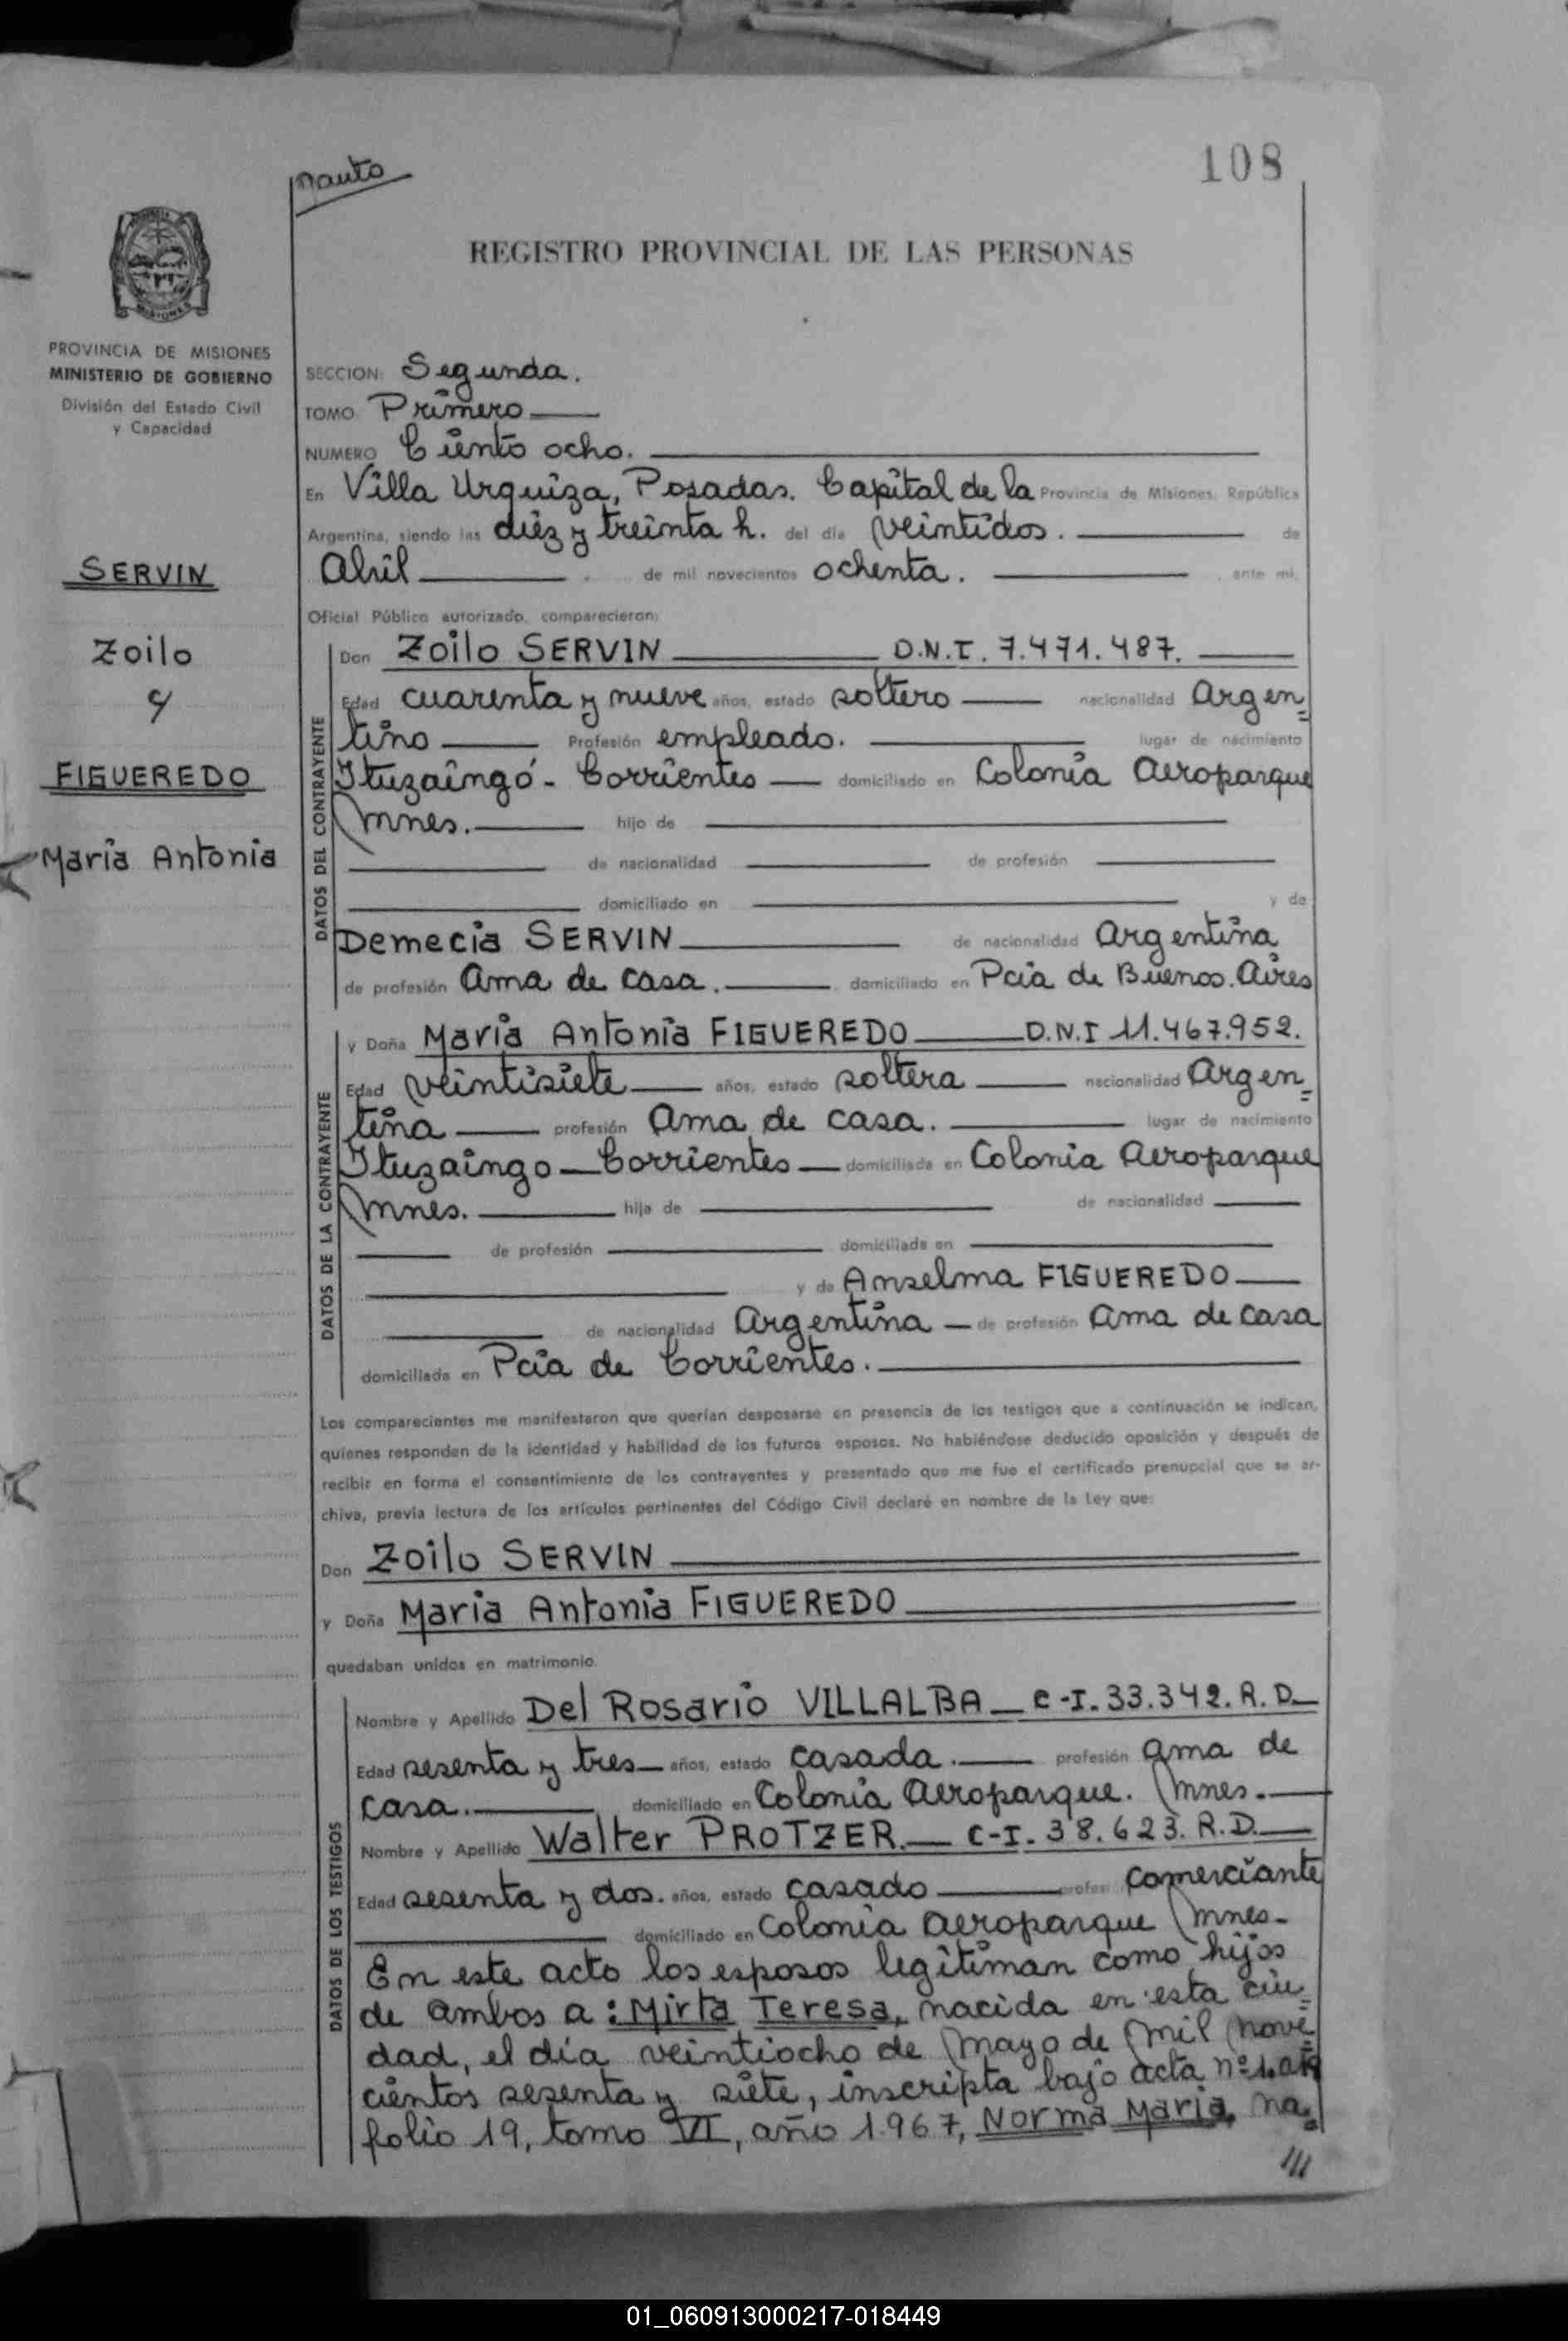 108
REGISTRO PROVINCIAL DE LAS PERSONAS
MISIONES
PROVINCIA DE MISIONES
MINISTERIO DE GOBIERNO
División del Estado Civil
y Capacidad
SERVIN
Zoilo
y
FIGUEREDO
Maria Antonia
SECCION: Segunda.
TOMO Primero
NUMERO Ciento ocho.
En Villa Urquiza, Posadas. Capital de la Provincia de Misiones, República
Argentina, siendo las diez y treinta h. del día veintidos. de
Abril de mil novecientos ochenta. , ante mi,
Oficial Público autorizado, comparecieron:
Don Zoilo SERVIN D.N.I. 7.471.487.
Edad cuarenta y nueve años, estado soltero nacionalidad Argen=
tino Profesión empleado. lugar de nacimiento
Ituzaingó - Corrientes domiciliado en Colonia Aeroparque
Mnes. hijo de
de nacionalidad de profesión
domiciliado en y de
Demecia SERVIN de nacionalidad Argentina
de profesión Ama de casa. domiciliado en Pcia de Buenos Aires
DATOS DEL CONTRAYENTE
y Doña Maria Antonia FIGUEREDO D.N.I 11.467.952.
Edad veintisiete años, estado soltera nacionalidad Argen=
tina profesión Ama de casa. lugar de nacimiento
Ituzaingo - Corrientes domiciliada en Colonia Aeroparque
Mnes. hija de de nacionalidad
de profesión domiciliada en
y de Anselma FIGUEREDO
de nacionalidad Argentina de profesión Ama de casa
domiciliada en Pcia de Corrientes.
DATOS DE LA CONTRAYENTE
Los comparecientes me manifestaron que querían desposarse en presencia de los testigos que a continuación se indican,
quienes responden de la identidad y habilidad de los futuros esposos. No habiéndose deducido oposición y después de
recibir en forma el consentimiento de los contrayentes y presentado que me fue el certificado prenupcial que se ar-
chiva, previa lectura de los artículos pertinentes del Código Civil declaré en nombre de la Ley que:
Don Zoilo SERVIN
y Doña Maria Antonia FIGUEREDO
quedaban unidos en matrimonio.
Nombre y Apellido Del Rosario VILLALBA C-I. 33.342. R.D.
Edad sesenta y tres años, estado casada. profesión ama de
casa. domiciliado en Colonia Aeroparque. Mnes.
Nombre y Apellido Walter PROTZER. C-I. 38.623. R.D.
Edad sesenta y dos. años, estado casado profes. comerciante
domiciliado en Colonia Aeroparque Mnes-
En este acto los esposos legitiman como hijos
de ambos a: Mirta Teresa, nacida en esta ciu=
dad, el día veintiocho de Mayo de Mil Nove
cientos sesenta y siete, inscripta bajo acta nº
folio 19, tomo VI, año 1.967, Norma Maria, na=
///
DATOS DE LOS TESTIGOS
01_060913000217-018449